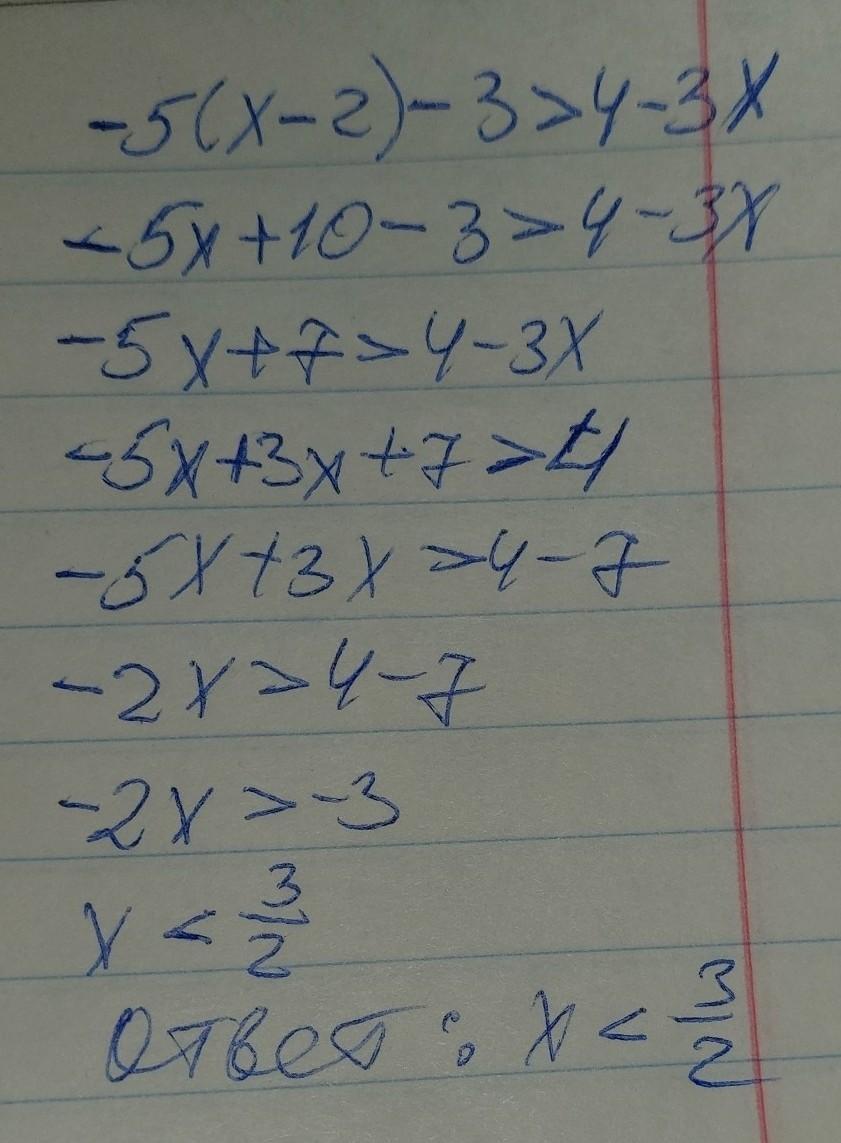 -5(x-2)-3>4-3x
-5x+10-3>4-3x
-5x+7>4-3x
-5x+3x+7>4
-5x+3x>4-7
-2x>4-7
-2x>-3
x<3/2
Ответ: x<3/2